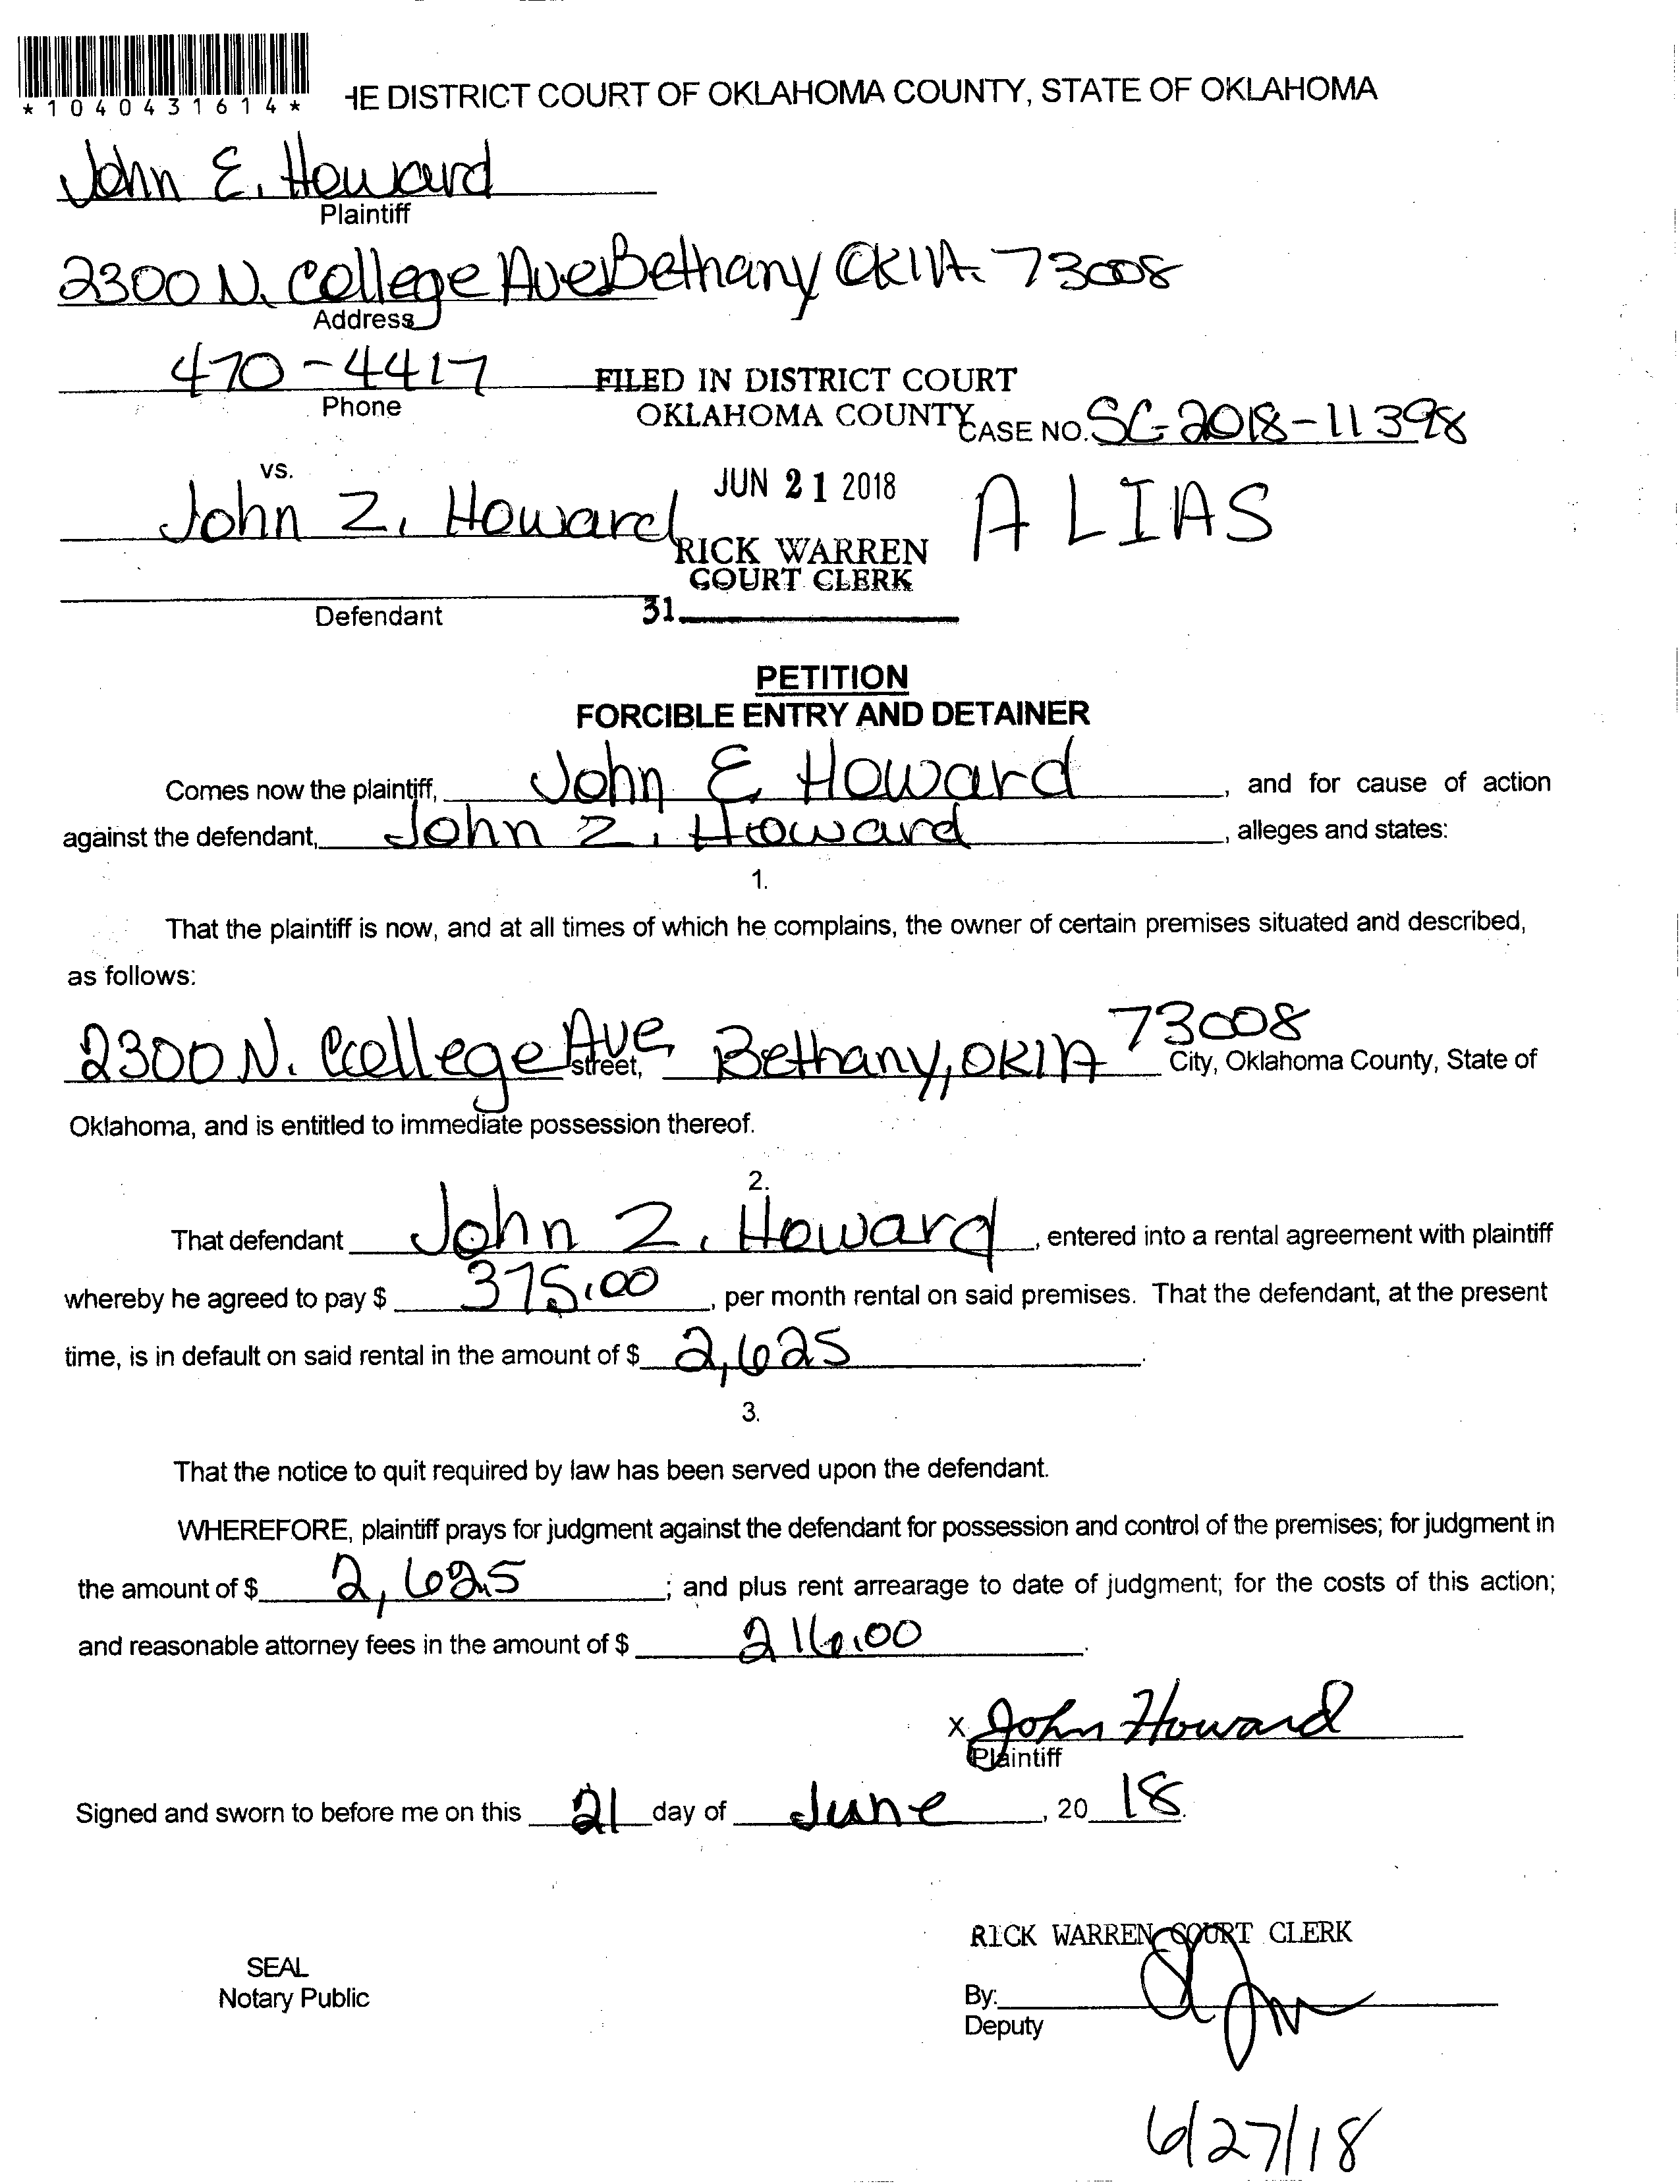 *1040431614*
HE DISTRICT COURT OF OKLAHOMA COUNTY, STATE OF OKLAHOMA
John E. Howard
Plaintiff
2300 N. College Ave Bethany OKlA. 73008
Address
470-4417
Phone
FILED IN DISTRICT COURT
OKLAHOMA COUNTY
CASE NO. SC-2018-11398
vs.
JUN 21 2018
John Z. Howard
ALIAS
RICK WARREN
COURT CLERK
Defendant
31
PETITION
FORCIBLE ENTRY AND DETAINER
Comes now the plaintiff, John E Howard, and for cause of action
against the defendant, John Z. Howard, alleges and states:
1.
That the plaintiff is now, and at all times of which he complains, the owner of certain premises situated and described,
as follows:
2300 N. College Ave street, Bethany, OKlA 73008 City, Oklahoma County, State of
Oklahoma, and is entitled to immediate possession thereof.
2.
That defendant John Z. Howard, entered into a rental agreement with plaintiff
whereby he agreed to pay $ 375.00, per month rental on said premises. That the defendant, at the present
time, is in default on said rental in the amount of $ 2,625.
3.
That the notice to quit required by law has been served upon the defendant.
WHEREFORE, plaintiff prays for judgment against the defendant for possession and control of the premises; for judgment in
the amount of $ 2,625; and plus rent arrearage to date of judgment; for the costs of this action;
and reasonable attorney fees in the amount of $ 216.00.
x John Howard
Plaintiff
Signed and sworn to before me on this 21 day of June, 20 18.
RICK WARREN COURT CLERK
SEAL
Notary Public
By:
Deputy
6/27/18